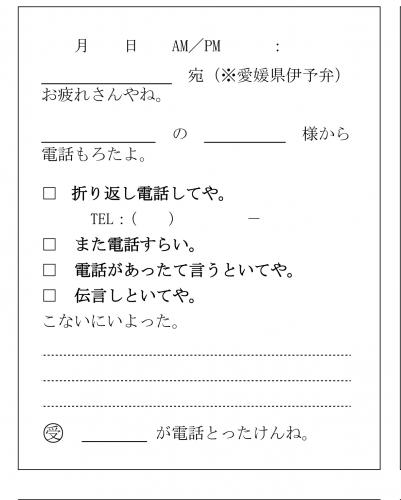 月 日 AM／PM ：
＿＿＿＿＿＿＿＿ 宛（※愛媛県伊予弁）
お疲れさんやね。
＿＿＿＿＿＿＿ の ＿＿＿＿＿ 様から
電話もろたよ。
□ 折り返し電話してや。
TEL：（ ） －
□ また電話すらい。
□ 電話があったて言うといてや。
□ 伝言しといてや。
こないにいよった。
㊝ ＿＿＿＿ が電話とったけんね。